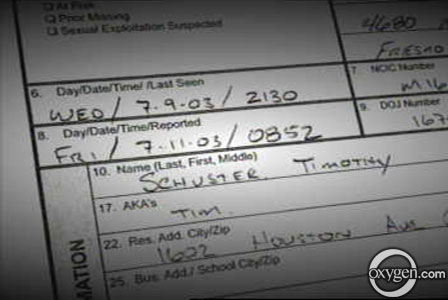 At Risk
Prior Missing
Sexual Exploitation Suspected
4680
FRESNO
6. Day/Date/Time/ /Last Seen
7 NCIC Number
WED / 7-9-03 / 2130
M16
8. Day/Date/Time/Reported
9. DOJ Number
FRI / 7-11-03 / 0852
167
10. Name (Last, First, Middle)
SCHUSTER TIMOTHY
17. AKA's
TIM
22. Res. Add. City/Zip
1622 HOUSTON AVE
25. Bus. Add./ School City/Zip
MATION
oxygen.com